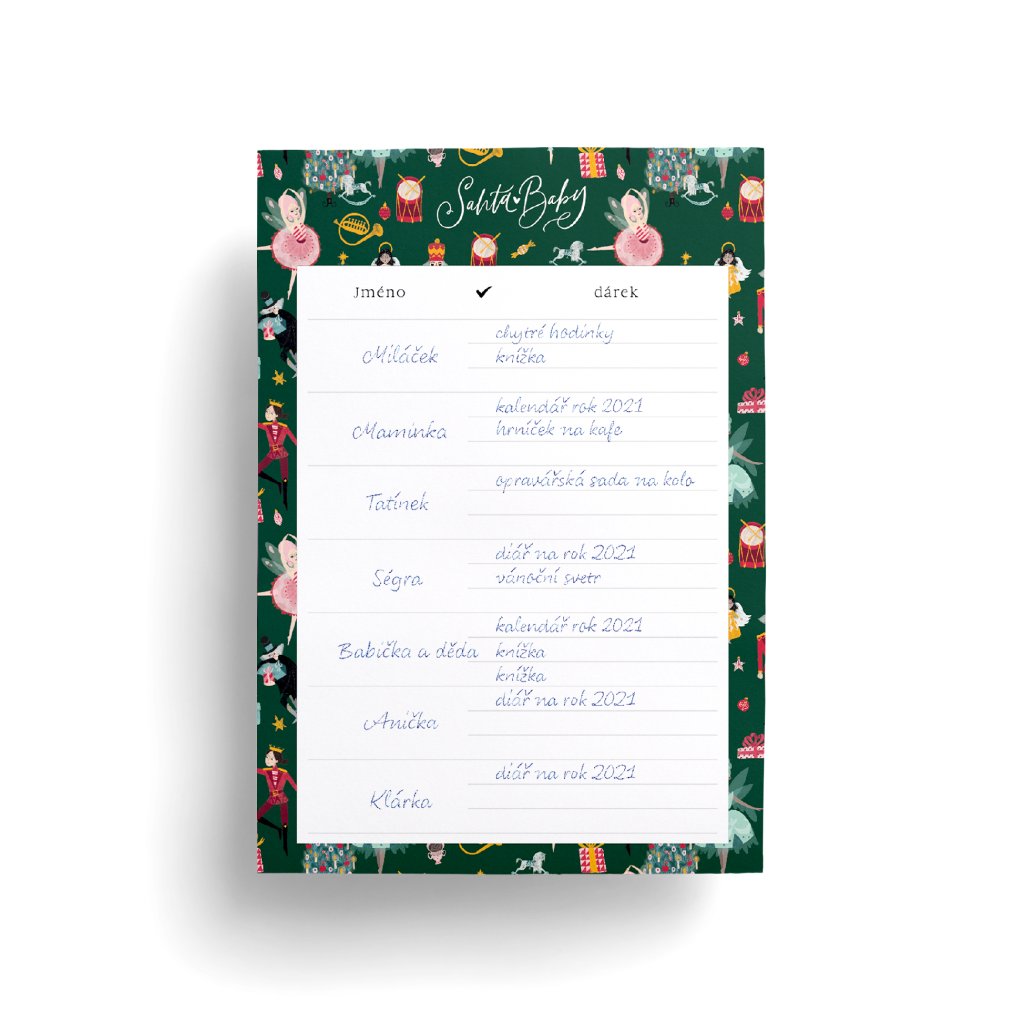 Santa Baby
Jméno ✓ dárek
chytré hodinky
Miláček knížka
kalendář rok 2021
Maminka hrníček na kafe
opravářská sada na kolo
Tatínek
diář na rok 2021
Ségra vánoční svetr
kalendář rok 2021
Babička a děda knížka
knížka
diář na rok 2021
Anička
diář na rok 2021
Klárka